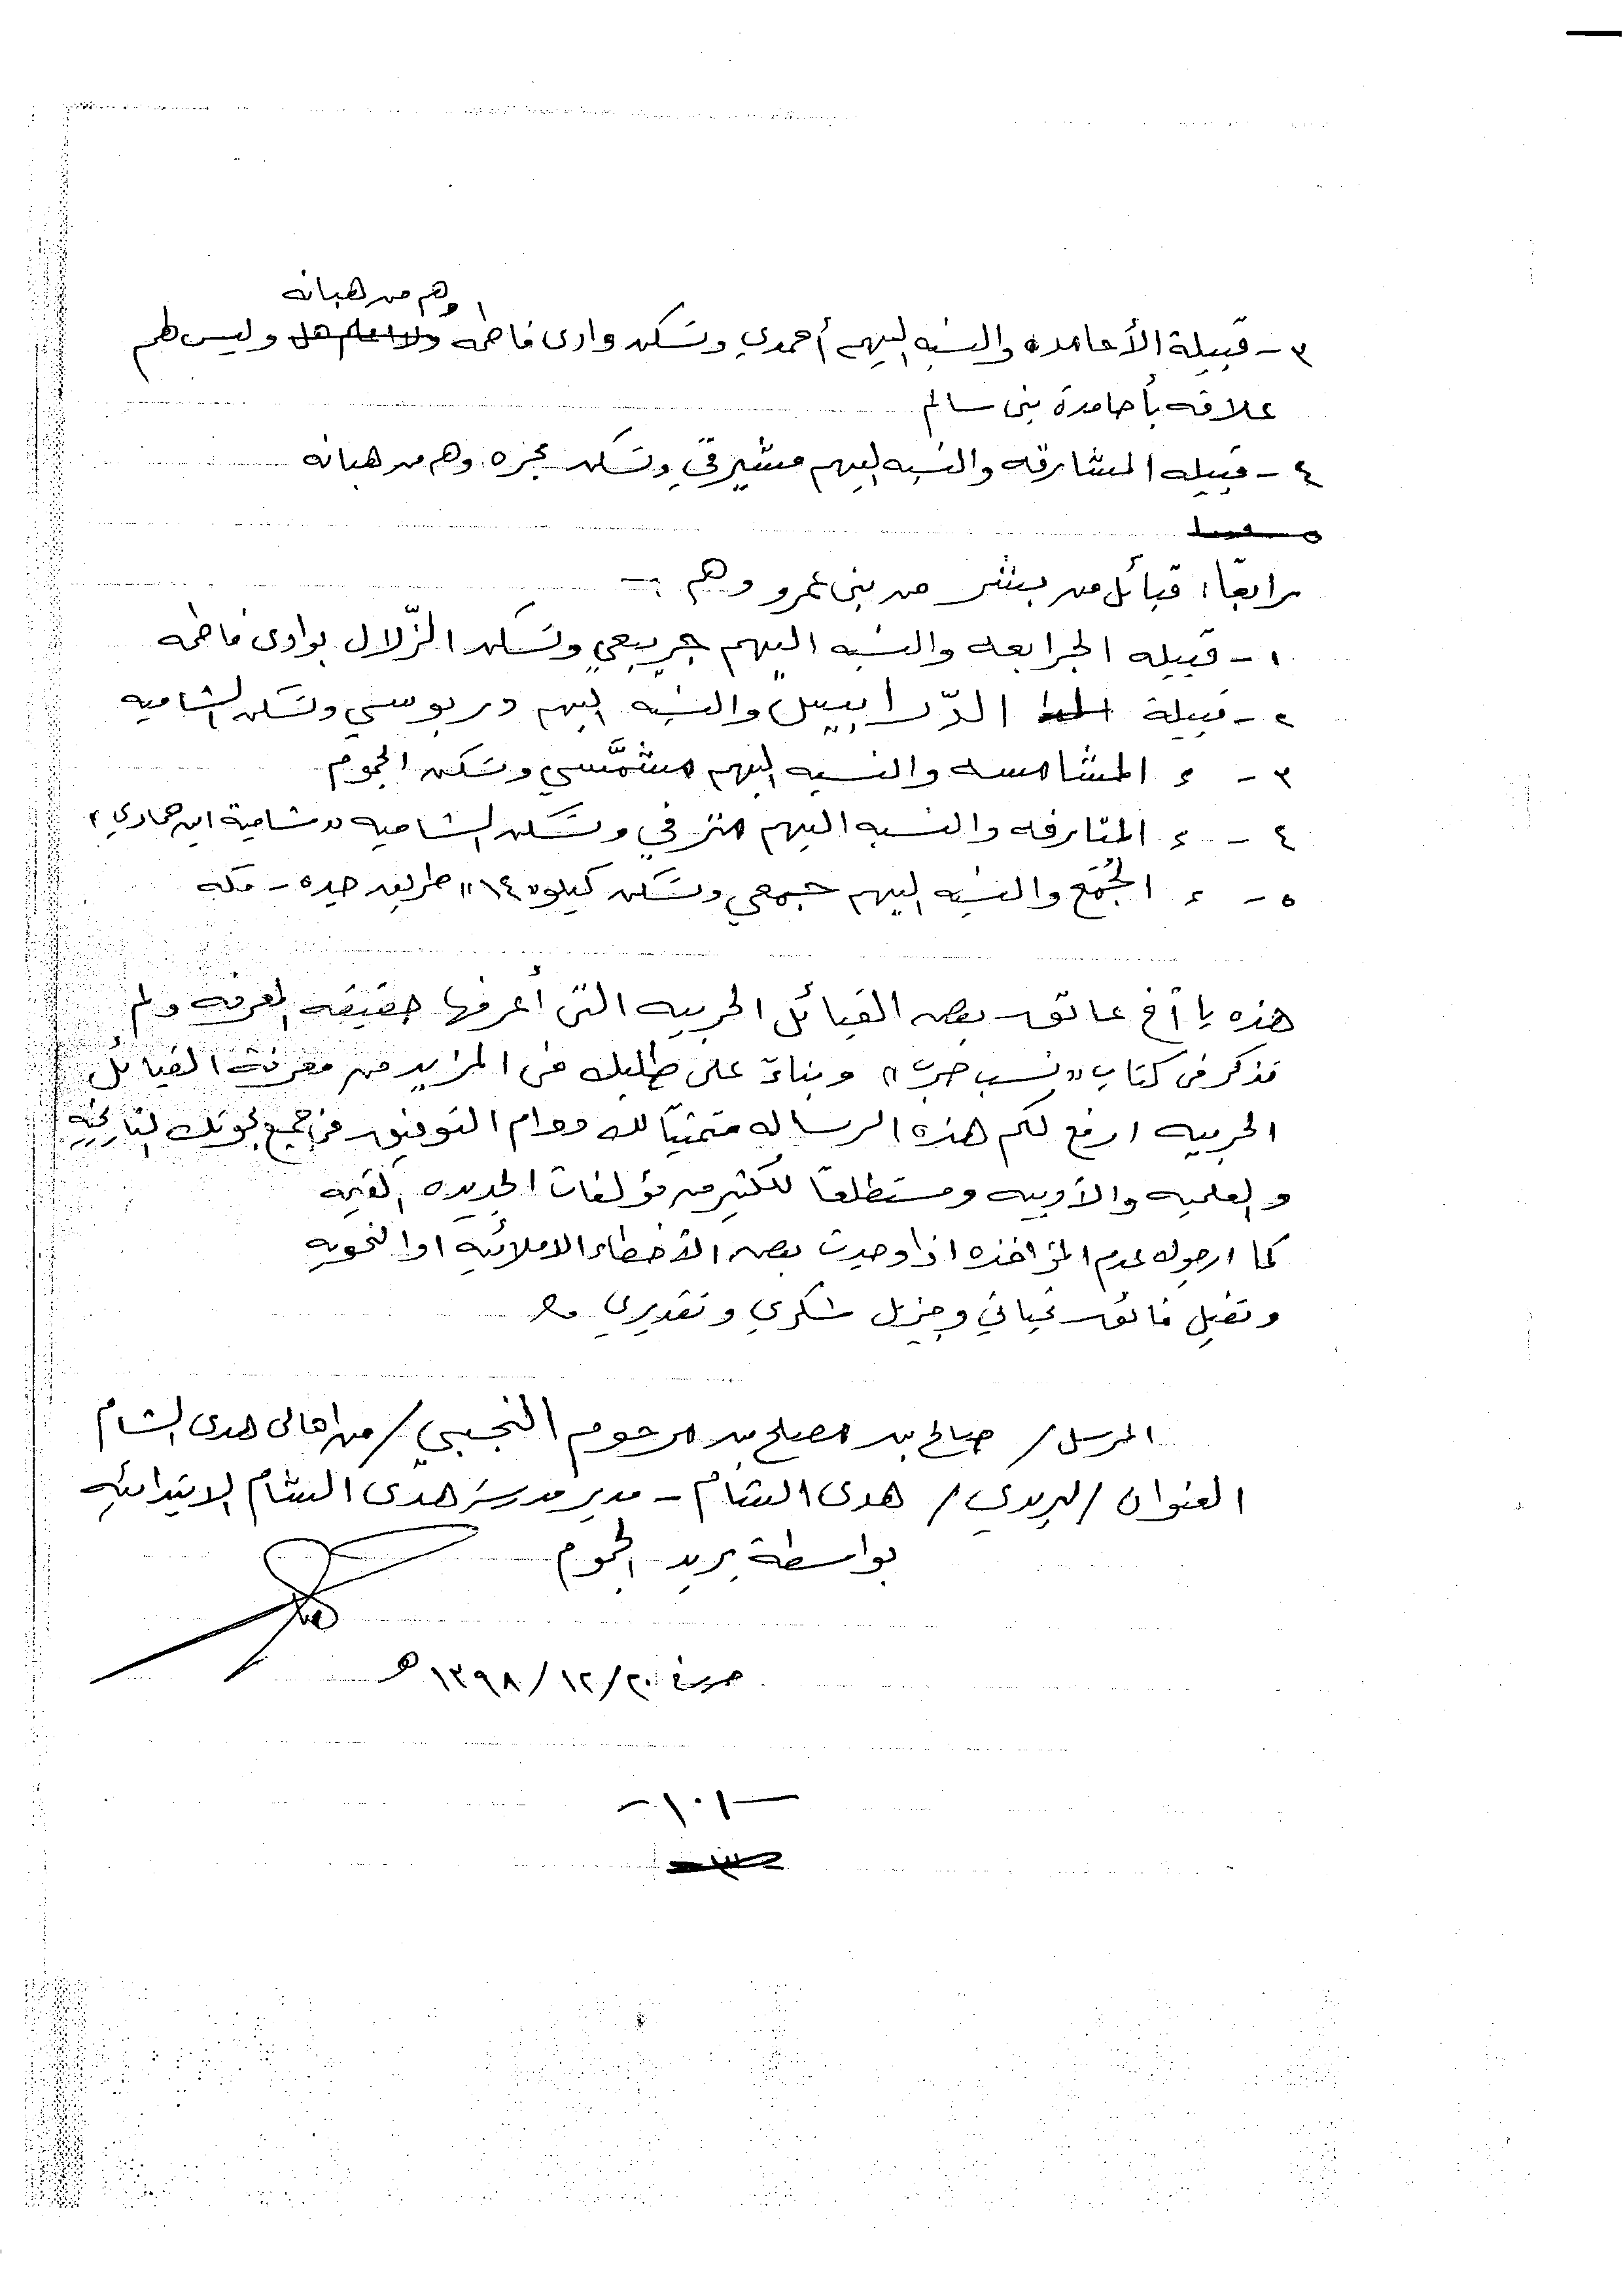 وهم من هبانه
٣ - قبيلة الأحامده والنسبه إليهم أحمدي وتسكن وادى فاطمه وليس لهم
علاقه بأحامدة بنى سالم
٤ - قبيله المشارقه والنسبه إليهم مشيرقي وتسكن عجزه وهم من هبانه
رابعًا: قبائل من بشر من بنى عمرو وهم :-
١ - قبيله الجرابعه والنسبه اليهم جريبعي وتسكن الزّلال بوادى فاطمه
٢ - قبيلة الدّرابيس والنسبه إليهم دربوسي وتسكن الشاميه
٣ - ء المشامسه والنسبه إليهم مشمَّسي وتسكن الجموم
٤ - ء المتارفه والنسبه اليهم مترفي وتسكن الشاميه "شامية ابن حمادي"
٥ - ء الجُمَع والنسبه إليهم جمعي وتسكن كيلو "١٤" طريق جده - مكه
هذه يا أخ عاتق بعض القبائل الحربيه التى أعرفها حقيقه المعرفه ولم
تذكر فى كتاب "نسب حرب" وبناءً على طلبك فى المزيد من معرفة القبائل
الحربيه ارفع لكم هذه الرساله متمنيًا لك دوام التوفيق في جميع بحوثك التاريخيه
والعلميه والأدبيه ومستطلعًا للكثير من مؤلفات الجديده القيمه
كما ارجوك عدم المؤاخذه اذا وجدت بعض الأخطاء الاملائيه او النحويه
وتقبل فائق تحياتي وجزيل شكري وتقديري
المرسل / صالح بن مصلح بن مرحوم النجيبي / من اهالى هدى الشام
العنوان / البريدي / هدى الشام - مدير مدرسة هدى الشام الابتدائيه
بواسطة بريد الجموم
حرر في ٢٠ / ١٢ / ١٣٩٨ هـ
- ١٠١ -